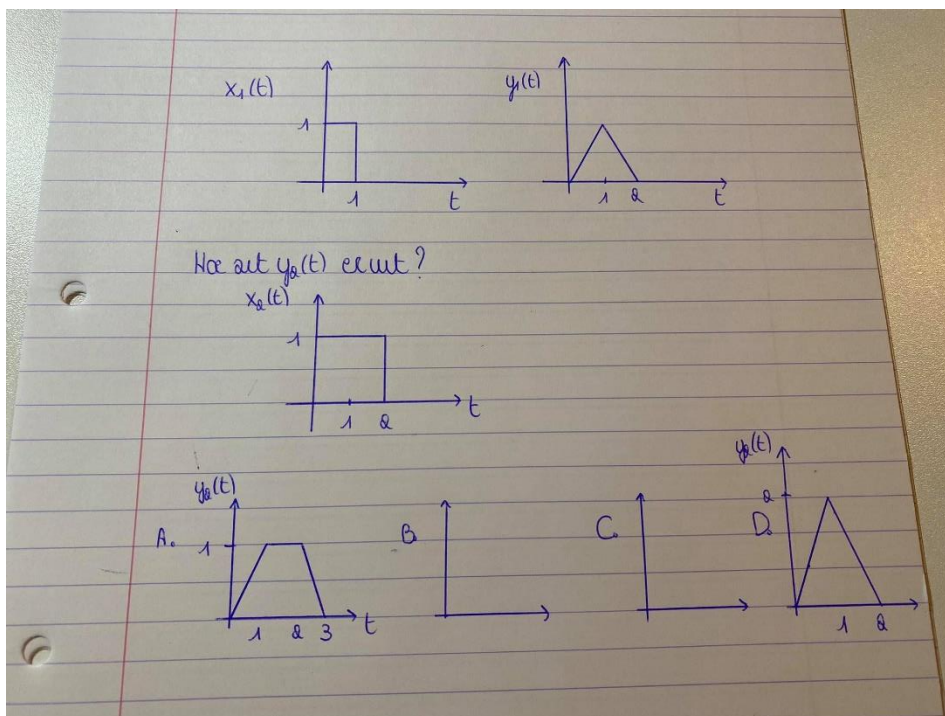 x₁(t)
1
1
t
y₁(t)
1 2
t
Hoe ziet y₂(t) eruit?
x₂(t)
1
1 2
t
A.
y₂(t)
1
1 2 3
t
B.
C.
D.
y₂(t)
2
1 2